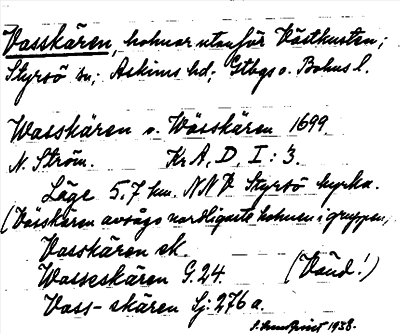 Vasskären, holmar utanför Västkusten;
Styrsö sn, Askims hd, Gtbgs o. Bohus l.
Wasskären o. Wässkären 1699
N. Ström. Kr A, D, I : 3.
Läge 5,7 km. NNV Styrsö kyrka.
(Västkären avsågs nordligaste holmen i gruppen,
Vasskären ek.
Wasseskären G. 24. (Vänd!)
Vass-skären Sj: 276 a.
1938.